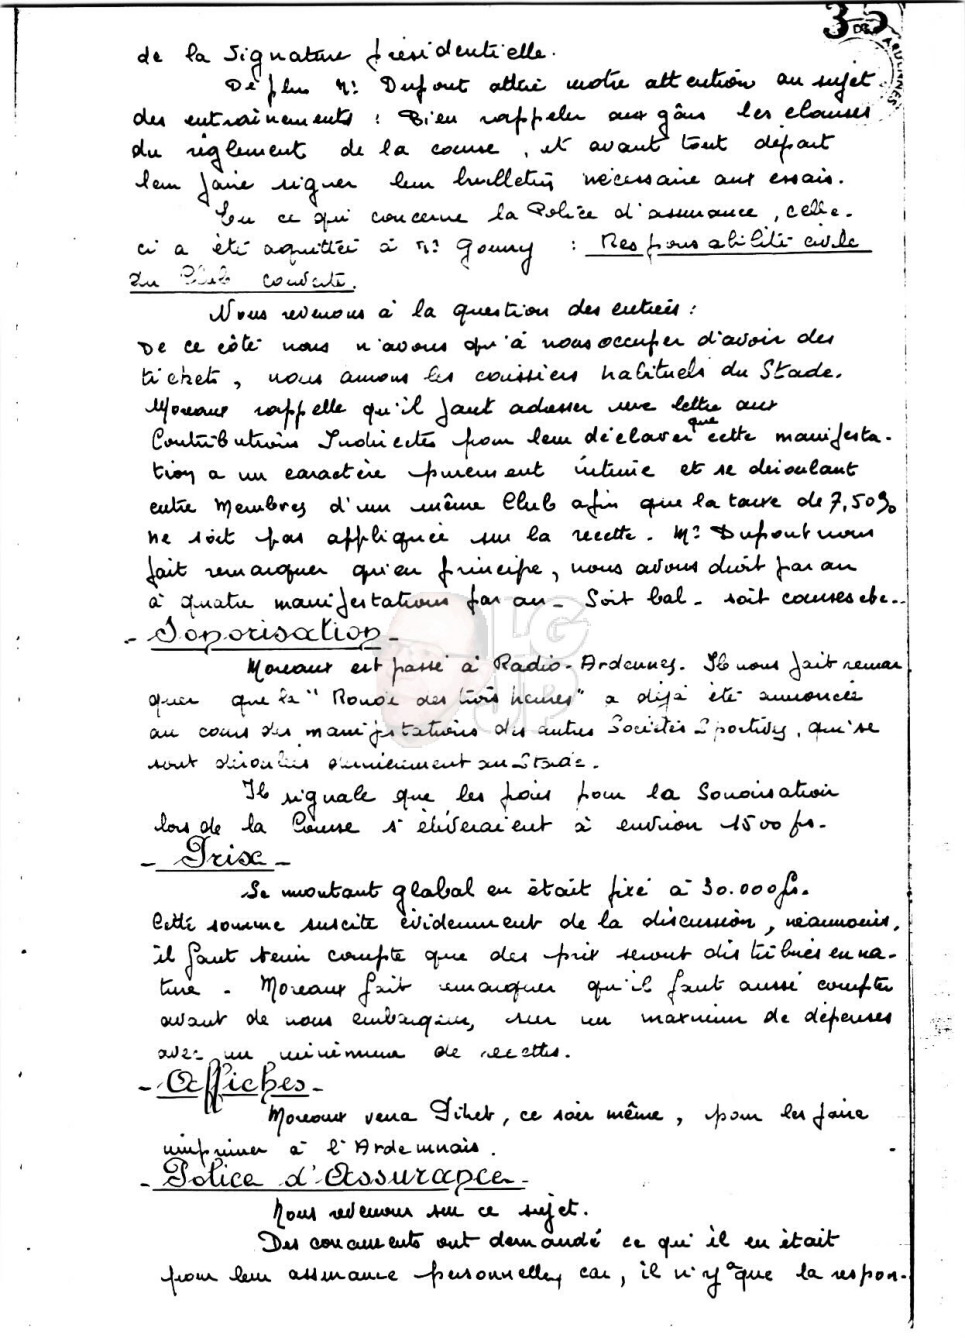 35
de la Signature présidentielle.
De plus Mr Dupont attire notre attention au sujet
des entraînements : Bien rappeler aux gârs les clauses
du règlement de la course, et avant tout départ
leur faire signer leur bulletin nécessaire aux essais.
En ce qui concerne la Police d'assurance, celle-
ci a été aquittée à Mr Gouny : Responsabilité civile
du Club couverte.
Nous revenons à la question des entrées :
De ce côté nous n'avons qu'à nous occuper d'avoir des
tickets, nous aurons les caissiers habituels du Stade.
Moreaux rappelle qu'il faut adresser une lettre aux
Contributions Indirectes pour leur déclarer que cette manifesta-
tion a un caractère purement intime et se déroulant
entre Membres d'un même Club afin que la taxe de 7,50%
ne soit pas appliquée sur la recette. Mr Dupont nous
fait remarquer qu'en principe, nous avons droit par an
à quatre manifestations par an - Soit bal - soit courses etc..
- Sonorisation -
Moreaux est passé à Radio-Ardennes. Il nous fait remar
quer que la "Ronde des trois heures" a déjà été annoncée
au cours des manifestations des autres Sociétés Sportives, qui se
sont déroulées dernièrement au Stade.
Il signale que les frais pour la Sonorisation
lors de la Course s'élèveraient à environ 1500 frs.
- Prix -
Le montant global en était fixé à 30.000 frs.
Cette somme suscite évidemment de la discussion, néanmoins,
il faut tenir compte que des prix seront distribués en na-
ture. Moreaux fait remarquer qu'il faut aussi compter
avant de nous embarquer, sur un maximum de dépenses
avec un minimum de recettes.
- Affiches -
Moreaux verra Pihet, ce soir même, pour les faire
imprimer à l'Ardennais.
- Police d'Assurance -
Nous revenons sur ce sujet.
Des concurrents ont demandé ce qu'il en était
pour leur assurance personnelle, car, il n'y a que la respon-
LG
JP